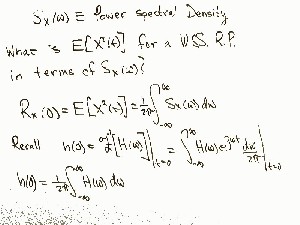 Sx(ω) ≡ Power spectral Density
What is E[X²(t)] for a W.S.S. R.P.
in terms of Sx(ω)?
Rx(0) = E[X²(t)] = 1/2π ∫_{-∞}^{∞} Sx(ω) dω
Recall h(0) = ℱ⁻¹[H(ω)]|_{t=0} = ∫_{-∞}^{∞} H(ω) e^{jωt} dω/2π |_{t=0}
h(0) = 1/2π ∫_{-∞}^{∞} H(ω) dω